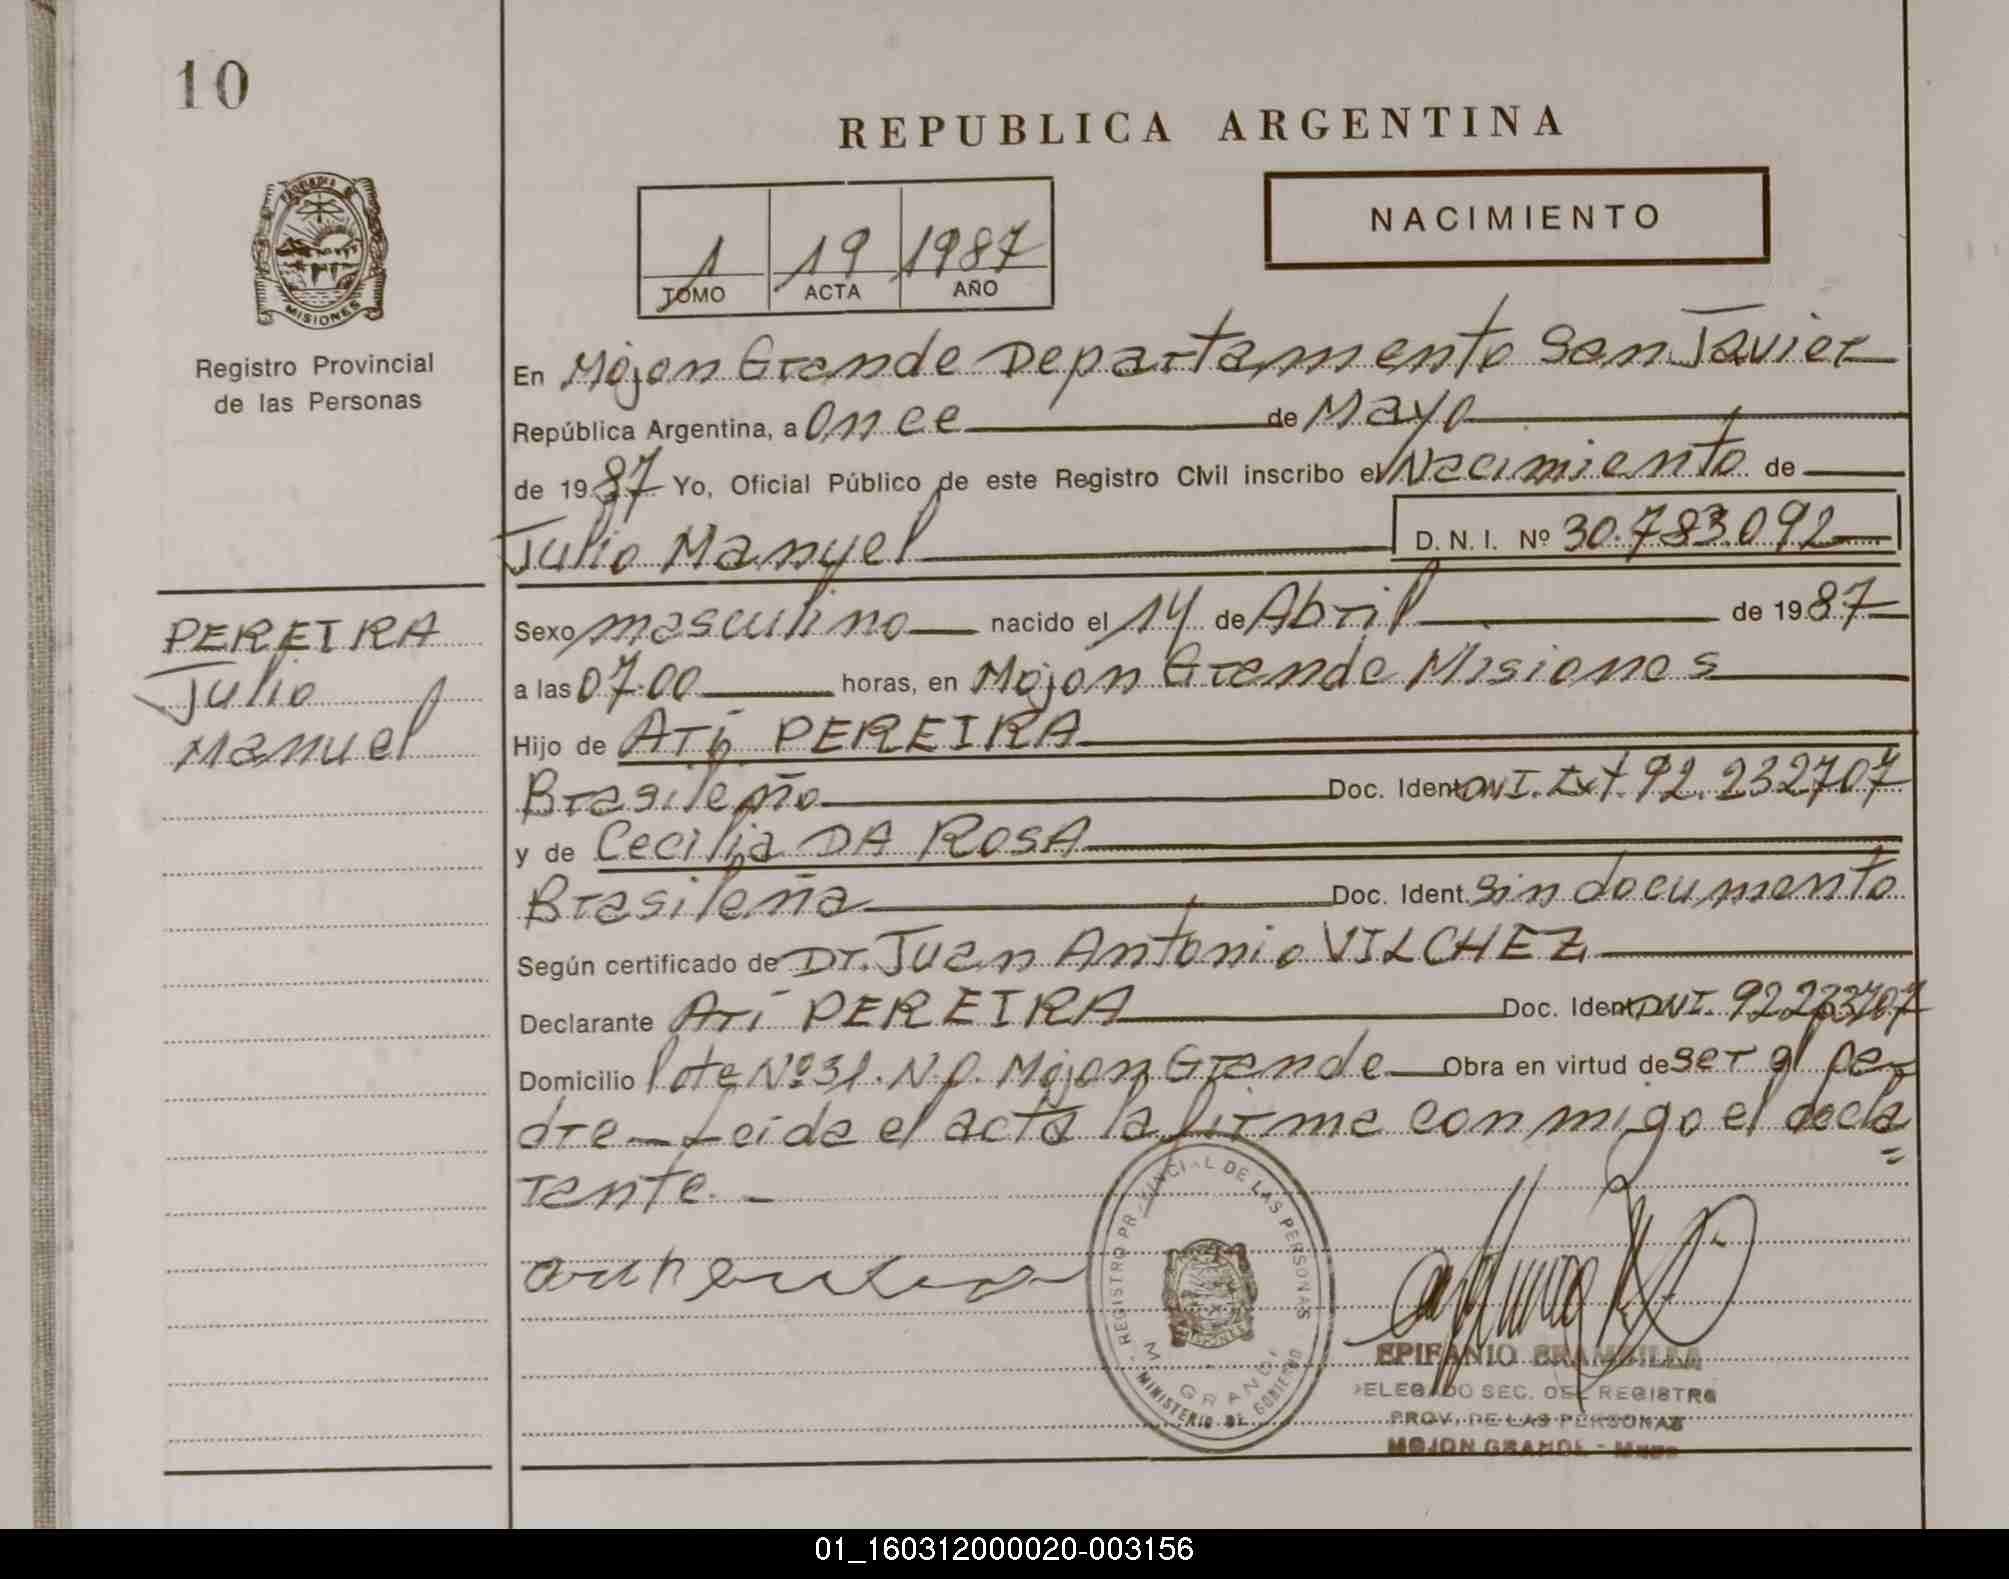 10
REPUBLICA ARGENTINA
NACIMIENTO
1 19 1987
TOMO ACTA AÑO
MISIONES
Registro Provincial
de las Personas
En Mojon Grande Departamento San Javier
República Argentina, a Once de Mayo
de 1987 Yo, Oficial Público de este Registro Civil inscribo el Nacimiento de
Julio Manuel D.N.I. Nº 30.783.092
PEREIRA
Julio
Manuel
Sexo masculino nacido el 14 de Abril de 1987
a las 07.00 horas, en Mojon Grande Misiones
Hijo de Ari PEREIRA
Brasileño Doc. Ident. DNI. Ext. 92.232707
y de Cecilia DA ROSA
Brasileña Doc. Ident. Sin documento
Según certificado de Dr. Juan Antonio VILCHEZ
Declarante Ari PEREIRA Doc. Ident. DNI.
Domicilio lote Nº 31. N.P. Mojon Grande Obra en virtud de ser el pa-
dre - Leida el acta la firma conmigo el decla
=
rante. -
REGISTRO PROVINCIAL DE LAS PERSONAS
M. GRANDE
MINISTERIO DE GOBIERNO
EPIFANIO BRAMBILLA
DELEGADO SEC. DEL REGISTRO
PROV. DE LAS PERSONAS
MOJON GRANDE - Mnes
01_160312000020-003156